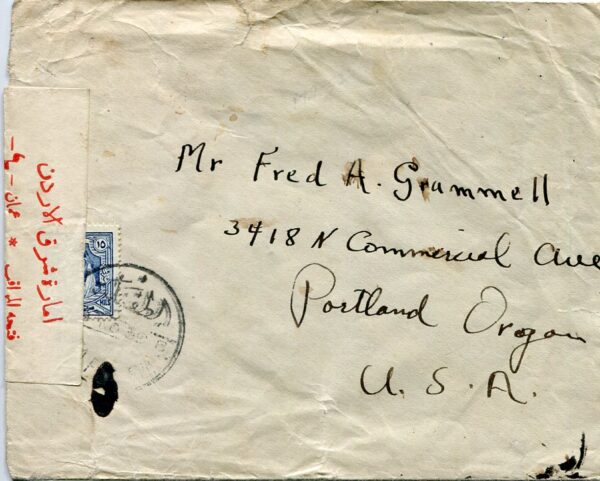 Mr Fred A. Grammell
3418 N Commercial Ave
Portland Orogon
U. S. A.
امارة شرق الاردن
عمان - ٩ -
فتحه المراقب *
١٥